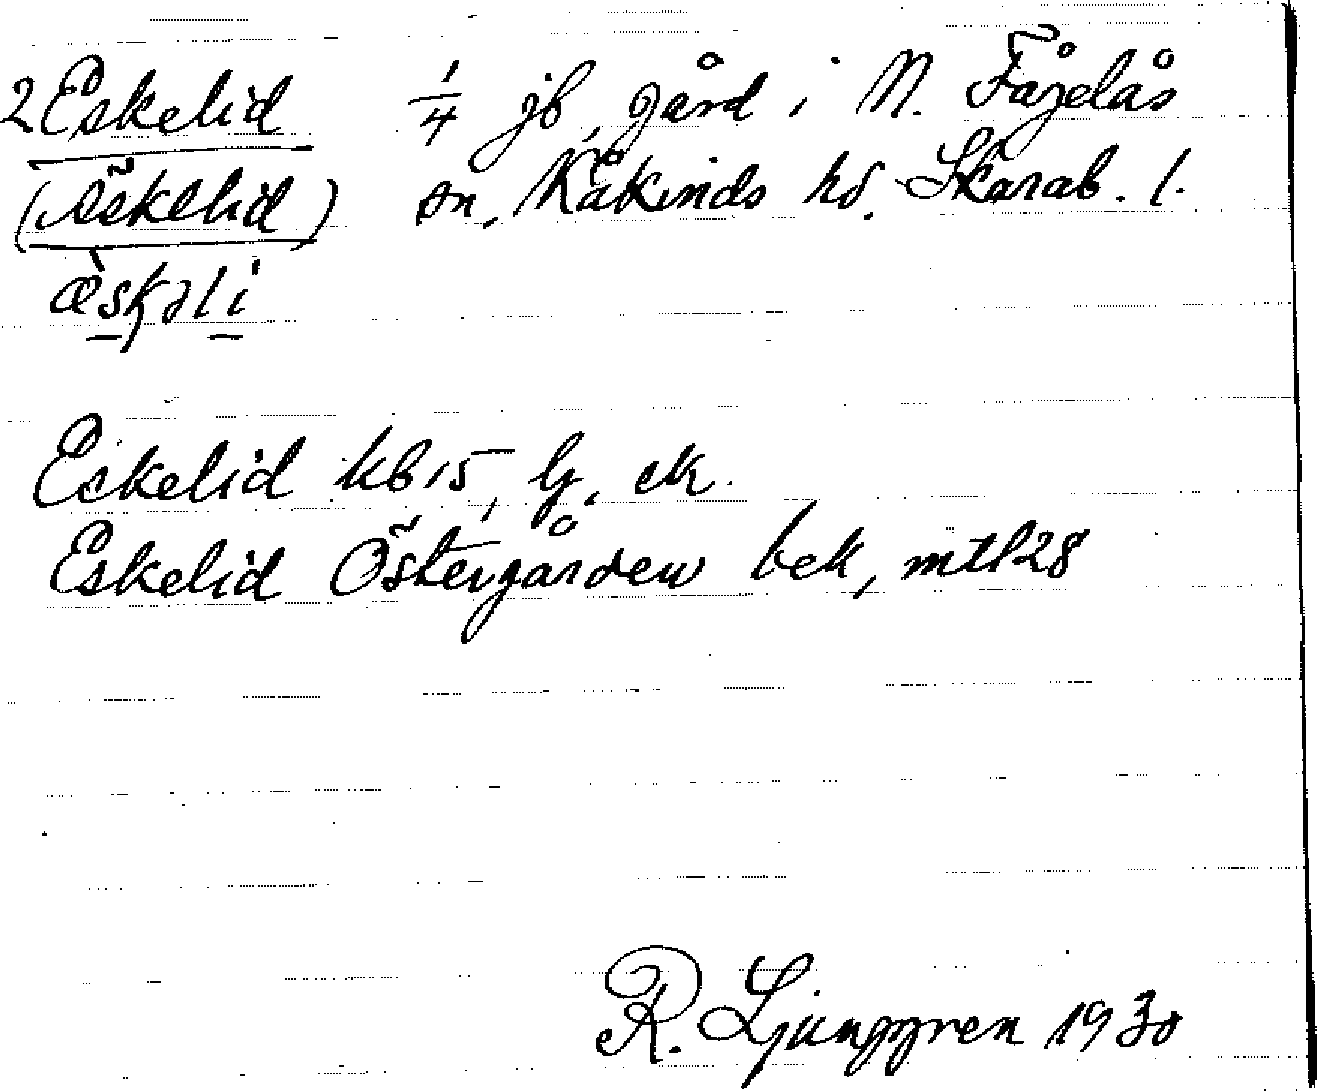 2 Eskelid 1/4 jb, gård i N. Fågelås
(Äskelid) sn, Kåkinds hd. Skarab. l.
æ̀skəli
Eskelid kb 15, lj, ek.
Eskelid Östergården bek, mtl 28
R. Ljunggren 1930